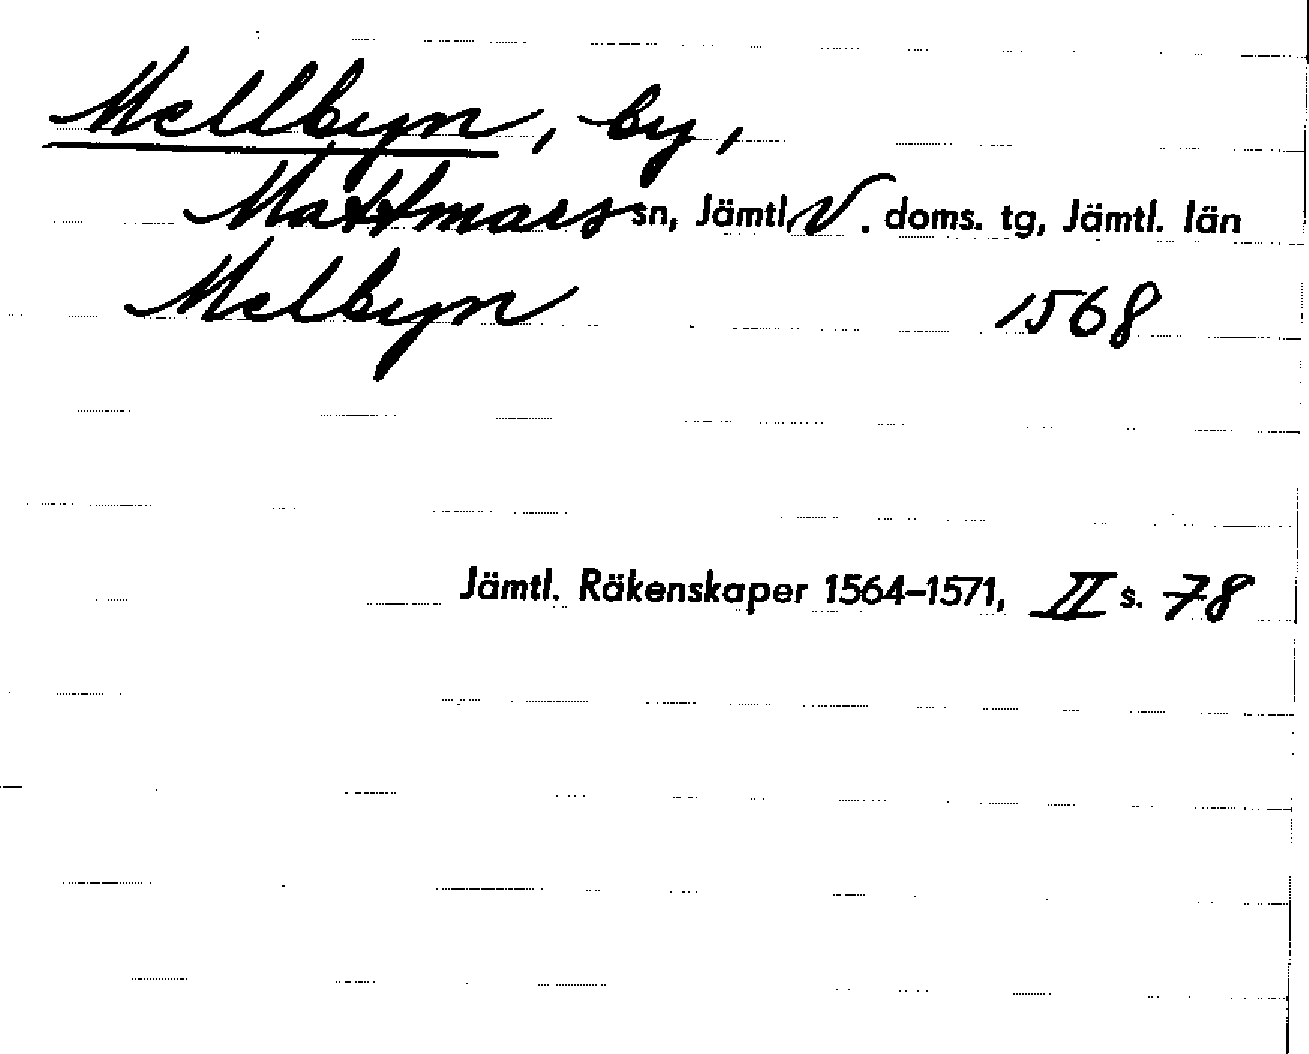 Mellbyn, by,
Mattmars sn, Jämtl. V. doms. tg, Jämtl. län
Melbyn 1568
Jämtl. Räkenskaper 1564-1571, II s. 78